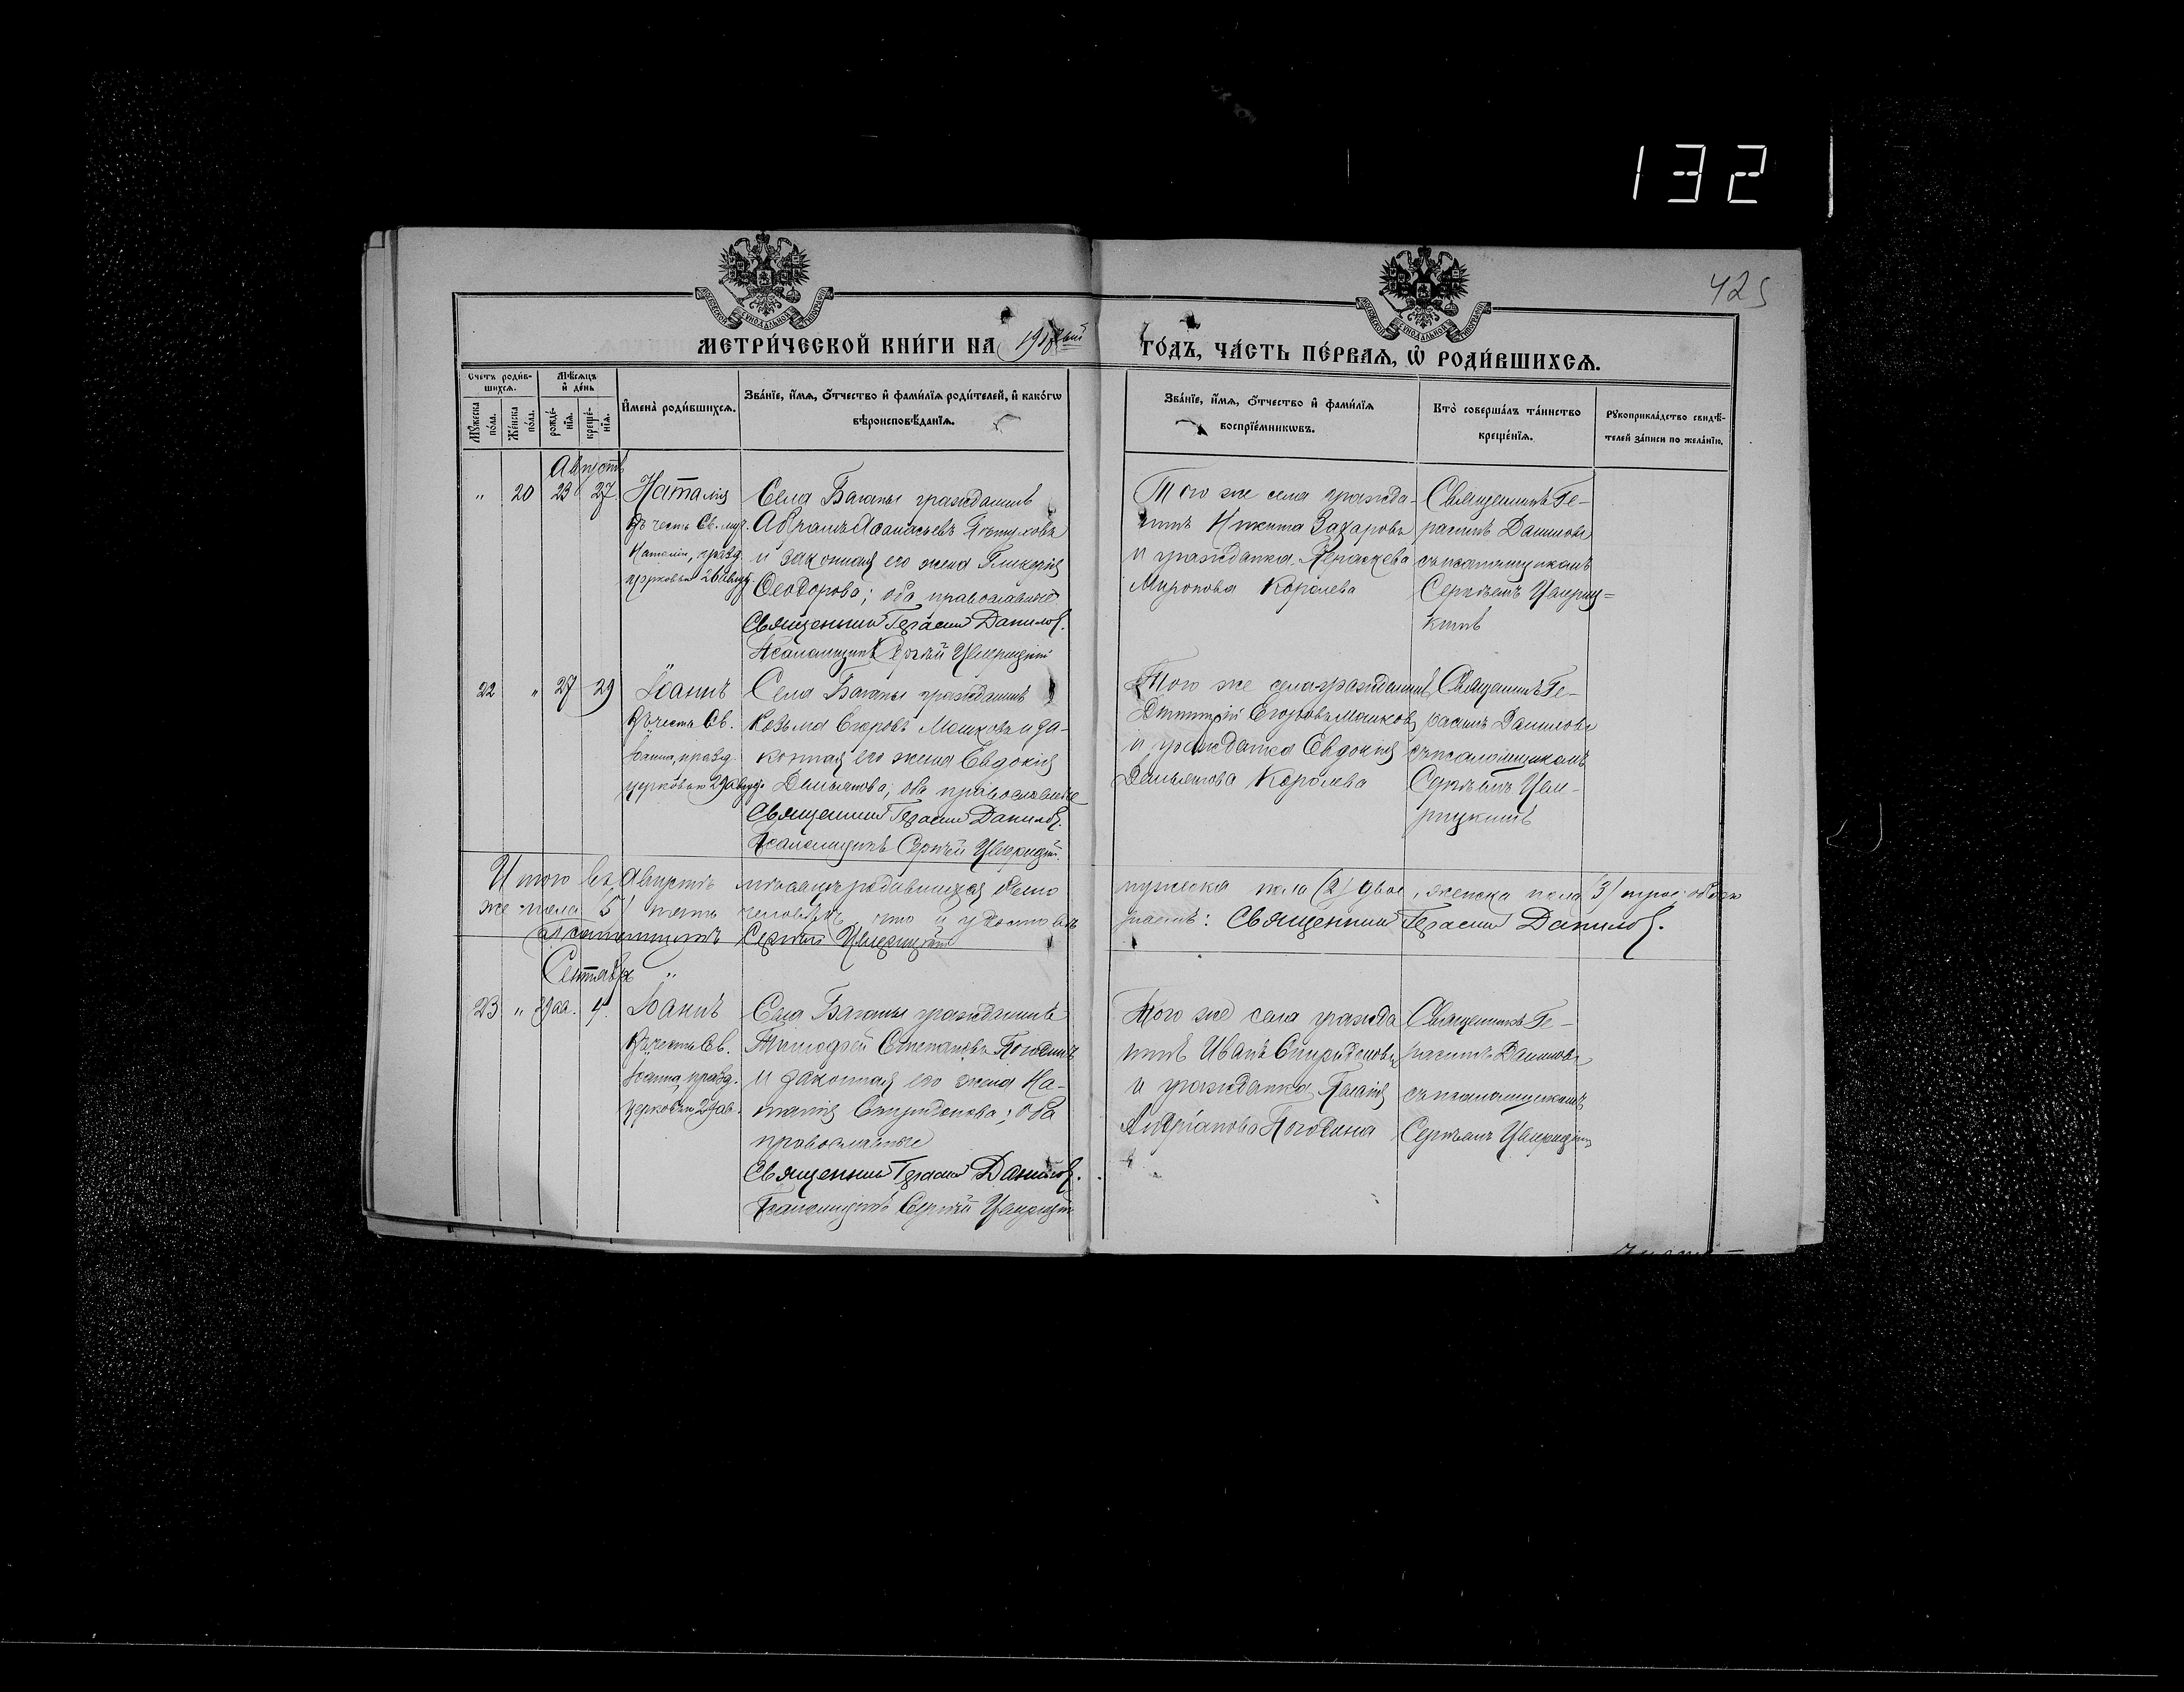 132
425
МЕТРИ́ЧЕСКОЙ КНИ́ГИ НА
ГО́ДЪ, ЧА́СТЬ ПЕ́РВАѦ, Ѡ҆ РОДИ́ВШИХСѦ.
Сче́тъ роди́вшихсѧ.
Мѣ́сѧцъ и҆ де́нь
Мꙋ́жеска по́ла.
Же́нска по́ла.
рожде́нїѧ.
креще́нїѧ.
И҆мена̀ роди́вшихсѧ.
Зва́нїе, и҆́мѧ, ѻ҆́тчество и҆ фами́лїѧ роди́телей, и҆ како́гѡ
вѣроисповѣ́данїѧ.
Зва́нїе, и҆́мѧ, ѻ҆́тчество и҆ фами́лїѧ
воспрїе́мникѡвъ.
Кто̀ соверша́лъ та́инство
креще́нїѧ.
Рꙋкоприкла́дство свидѣ́-
телей за́писи по жела́нїю.
Августъ
" 20 23 27 Наталія
Въ честь Св. муч.
Наталіи, празд.
церковью 26 авг.
Села Баганы гражданинъ
Абрамъ Аѳанасьевъ Пѣтуховъ
и законная его жена Гликерія
Ѳеодорова; оба православные.
Священникъ Герасим Данилов.
Псаломщикъ Сергѣй Цвѣрицкій
Того же села гражда-
нинъ Никита Захаровъ
и гражданка Параскева
Миронова Королева
Священникъ Ге-
расимъ Даниловъ
съ псаломщикомъ
Сергѣемъ
22 " 27 29 Іоаннъ
Въ честь Св.
Іоанна, празд.
церковью 29 авг.
Села Баганы гражданинъ
Козьма Егоровъ Машковъ и за-
конная его жена Евдокія
Демьянова; оба православные
Священникъ Герасим Данилов.
Псаломщикъ Сергѣй
Того же села гражданинъ
Димитрій Егоровъ Машковъ
и гражданка Евдокія
Демьянова Королева
Священникъ Ге-
расимъ Даниловъ
съ псаломщикомъ
Сергѣемъ
Итого въ Августѣ мѣсяцѣ родившихся было
мужеска пола (2) двое, женска пола (3) трое; обоего
же пола (5) пять человѣкъ, что и удостовѣ-
ряемъ: Священникъ Герасим Данилов.
Псаломщикъ Сергѣй
Сентябрь
23 " 29 ав. 4 Іоаннъ
Въ честь Св.
Іоанна, празд.
церковью 29 ав.
Села Баганы гражданинъ
Тимоѳей Степановъ Погодинъ
и законная его жена На-
талія Спиридонова; оба
православные
Священникъ Герасим Данилов.
Псаломщикъ Сергѣй
Того же села гражда
нинъ Иванъ Спиридоновъ
и гражданка Пелагія
Андріанова Погодина
Священникъ Ге-
расимъ Даниловъ
съ псаломщикомъ
Сергѣемъ